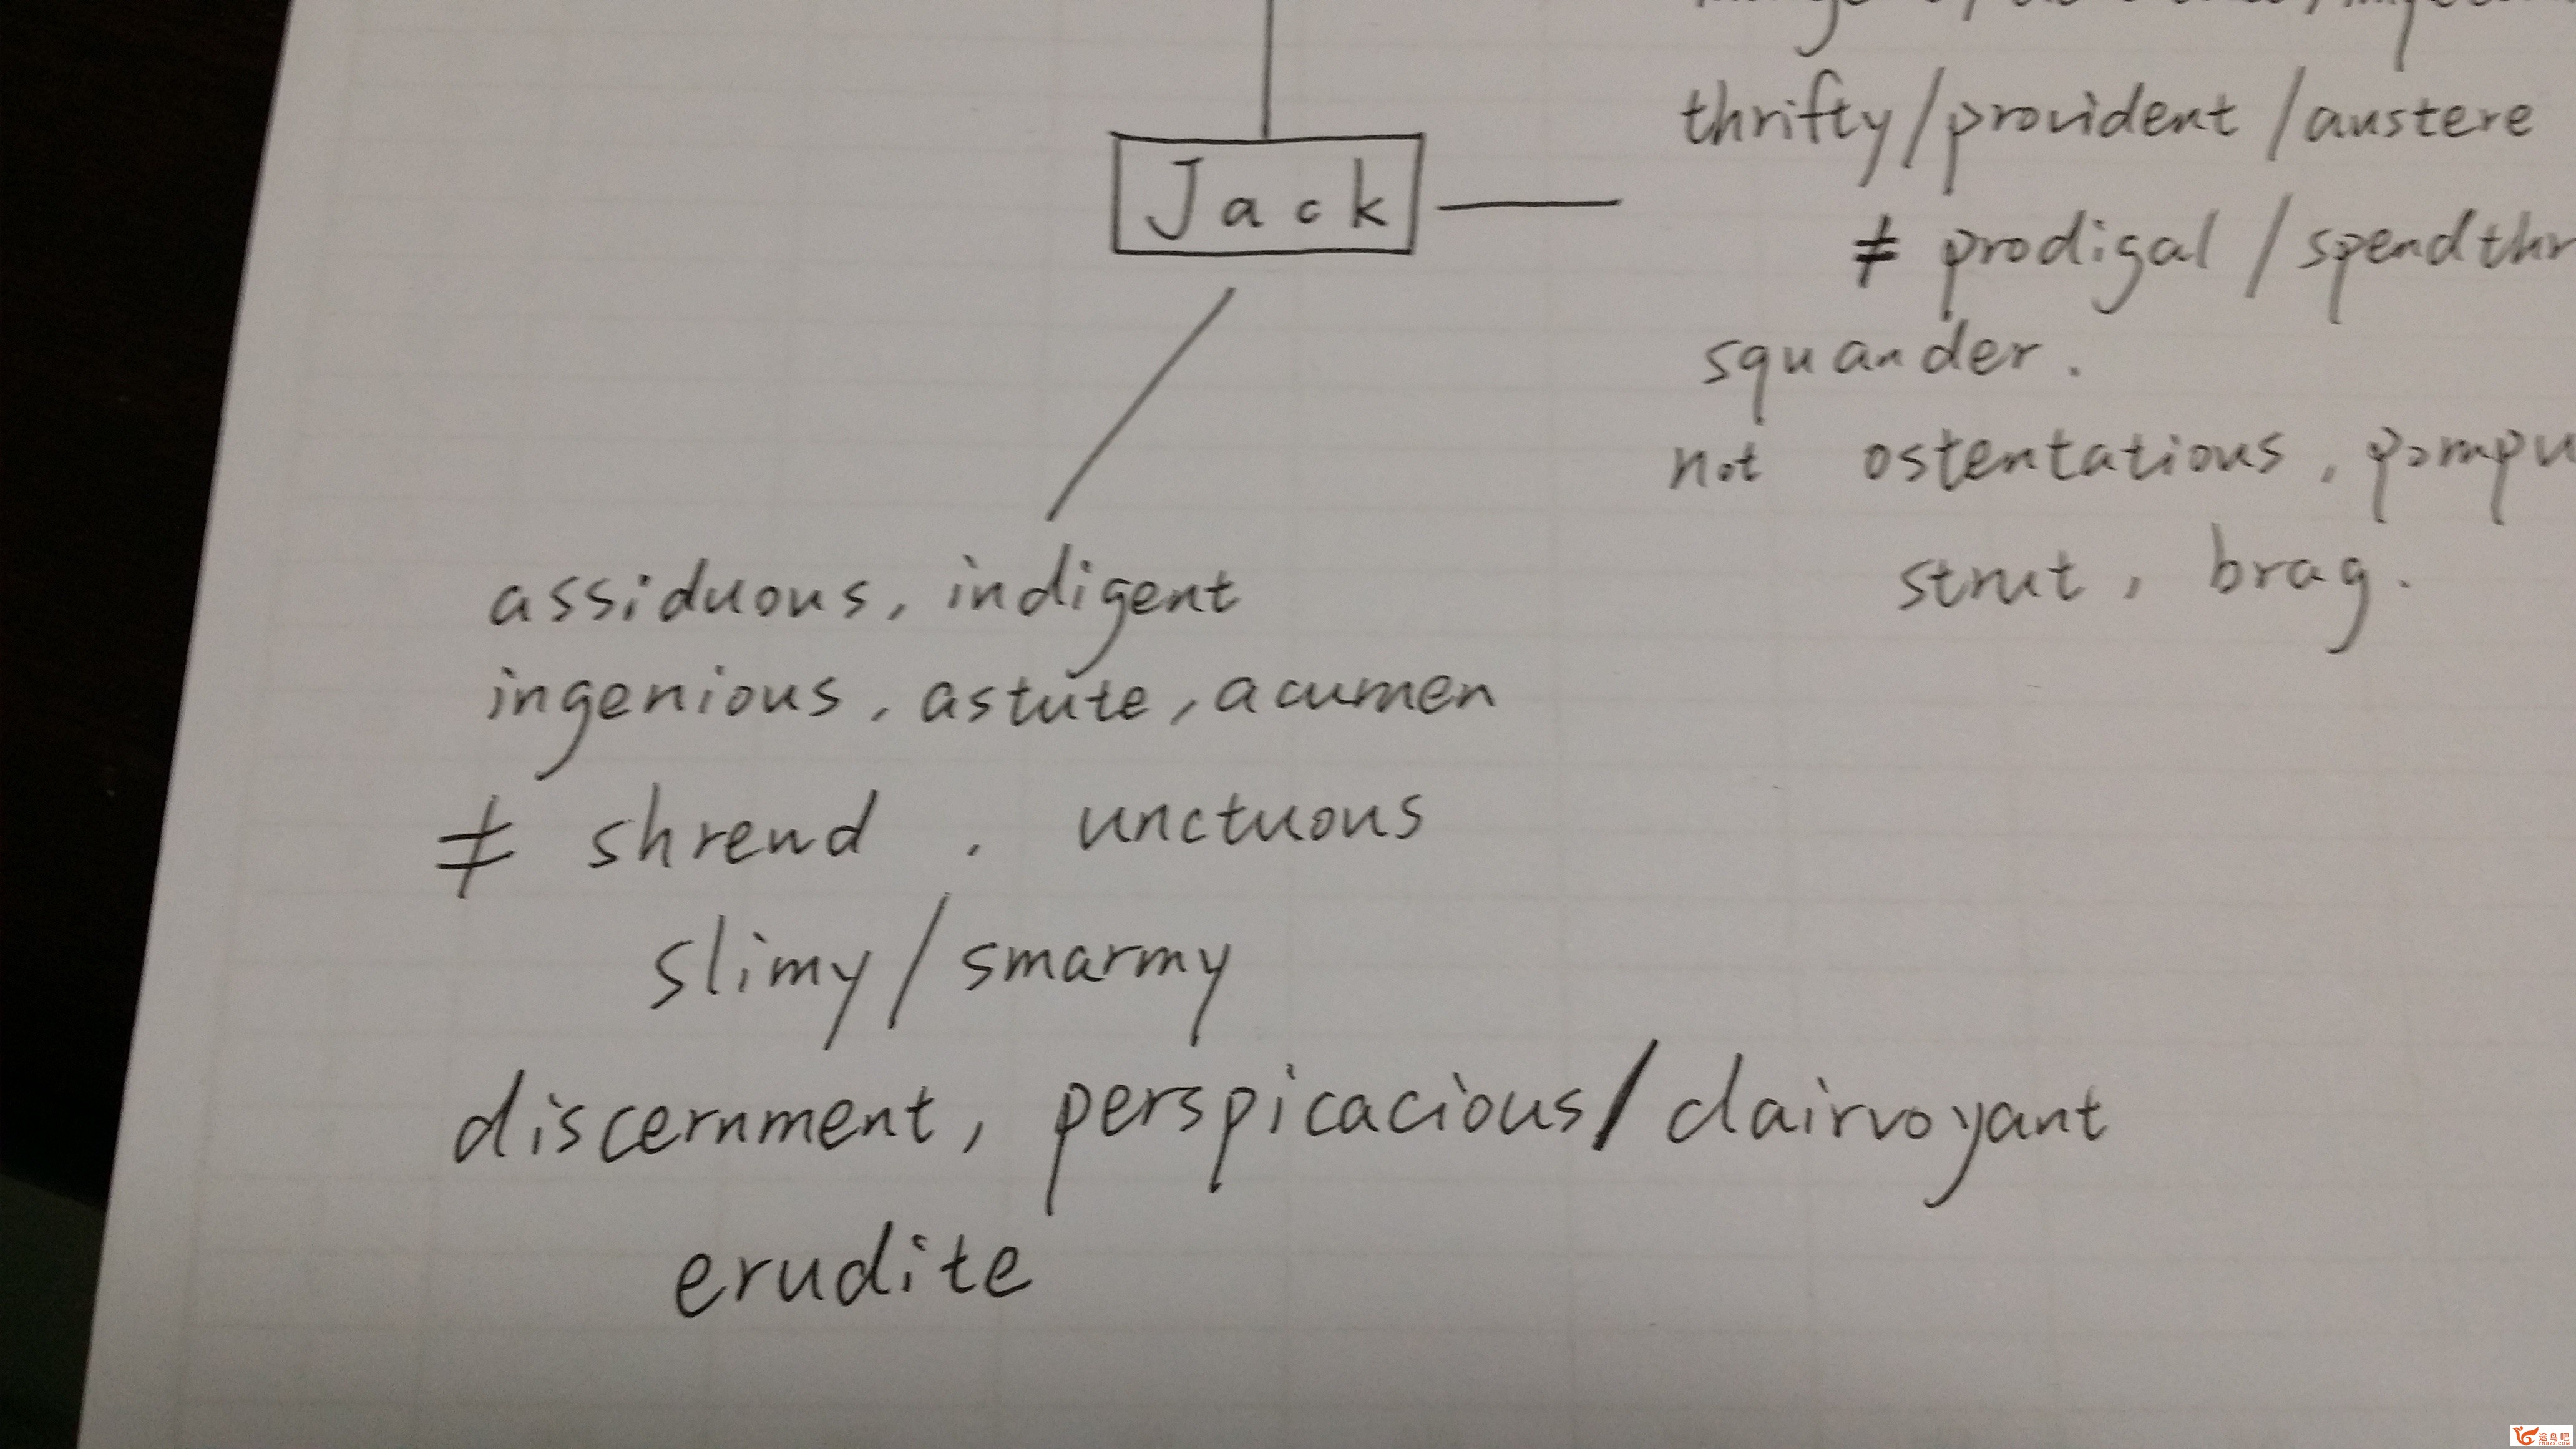 Jack
thrifty/provident/austere
≠ prodigal/spendthr
squander.
not ostentatious, pompu
strut, brag.
assiduous, indigent
ingenious, astute, acumen
≠ shrend. unctuous
slimy/smarmy
discernment, perspicacious/clairvoyant
erudite
途鸟吧